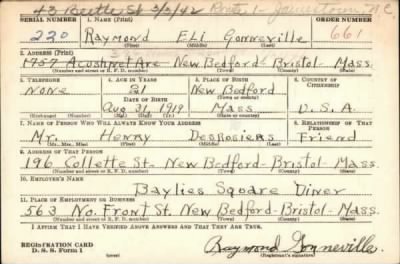 43 Beetle St 3/2/42 Route 1- Jamestown, N.C.
SERIAL NUMBER 1. NAME (Print) ORDER NUMBER
220 Raymond Eli Gonneville 661
(First) (Middle) (Last)
2. ADDRESS (Print)
1757 Acushnet Ave New Bedford- Bristol- Mass.
(Number and street or R. F. D. number) (Town) (County) (State)
3. TELEPHONE 4. AGE IN YEARS 5. PLACE OF BIRTH 6. COUNTRY OF CITIZENSHIP
None 21 New Bedford
DATE OF BIRTH (Town or county)
Aug 31, 1919 Mass U.S.A.
(Exchange) (Number) (Mo.) (Day) (Yr.) (State or country)
7. NAME OF PERSON WHO WILL ALWAYS KNOW YOUR ADDRESS 8. RELATIONSHIP OF THAT PERSON
Mr. Henry DesRosiers Friend
(Mr., Mrs., Miss) (First) (Middle) (Last)
9. ADDRESS OF THAT PERSON
196 Collette St- New Bedford- Bristol- Mass.
(Number and street or R. F. D. number) (Town) (County) (State)
10. EMPLOYER'S NAME
Baylies Square Diner
11. PLACE OF EMPLOYMENT OR BUSINESS
563 No. Front St. New Bedford- Bristol- Mass.
(Number and street or R. F. D. number) (Town) (County) (State)
I AFFIRM THAT I HAVE VERIFIED ABOVE ANSWERS AND THAT THEY ARE TRUE.
REGISTRATION CARD
D. S. S. Form 1 (over) Raymond Gonneville
(Registrant's signature)